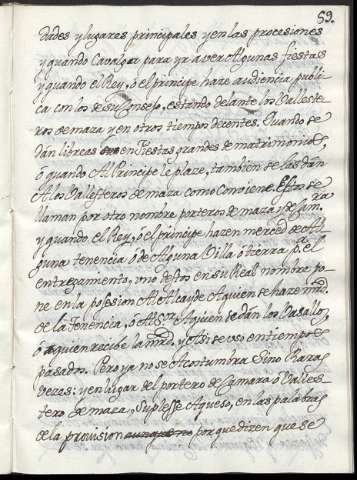 59.
dades y lugares principales y en las procesiones
y quando Cavalgar para yr a ver Algunas fiestas
y quando el Rey, ò el principe haze audiencia publi
ca con los de su Consejo, estando delante los Balleste
ros de maza y en otros tiempos decentes. Quando se
dán libreas en Fiestas grandes de matrimonios,
ò quando Al Principe le plaze, tambien se las dán
A los Ballesteros de maza como Conviene. Estos se
llaman por otro nombre porteros de maza y de Camara
y quando el Rey, ò el principe hazen merced de Al
guna tenencia ò de Alguna Villa ò tierra pa. el
entregamiento, uno destos en su Real nombre po
ne en la posesion Al Alcayde A quien se haze mrd.
de la Tenencia, ò Al Sor. A quien se dán los Vasallos,
ò a quien recibe la mrd, y Asi se uso en tiempos
pasados. Pero ya no se Acostumbra Sino Raras
Vezes: y en lugar del portero de Camara ò Valles
tero de maza, Suplesse Aqueso, en las palabras
de la provision porque dizen que se